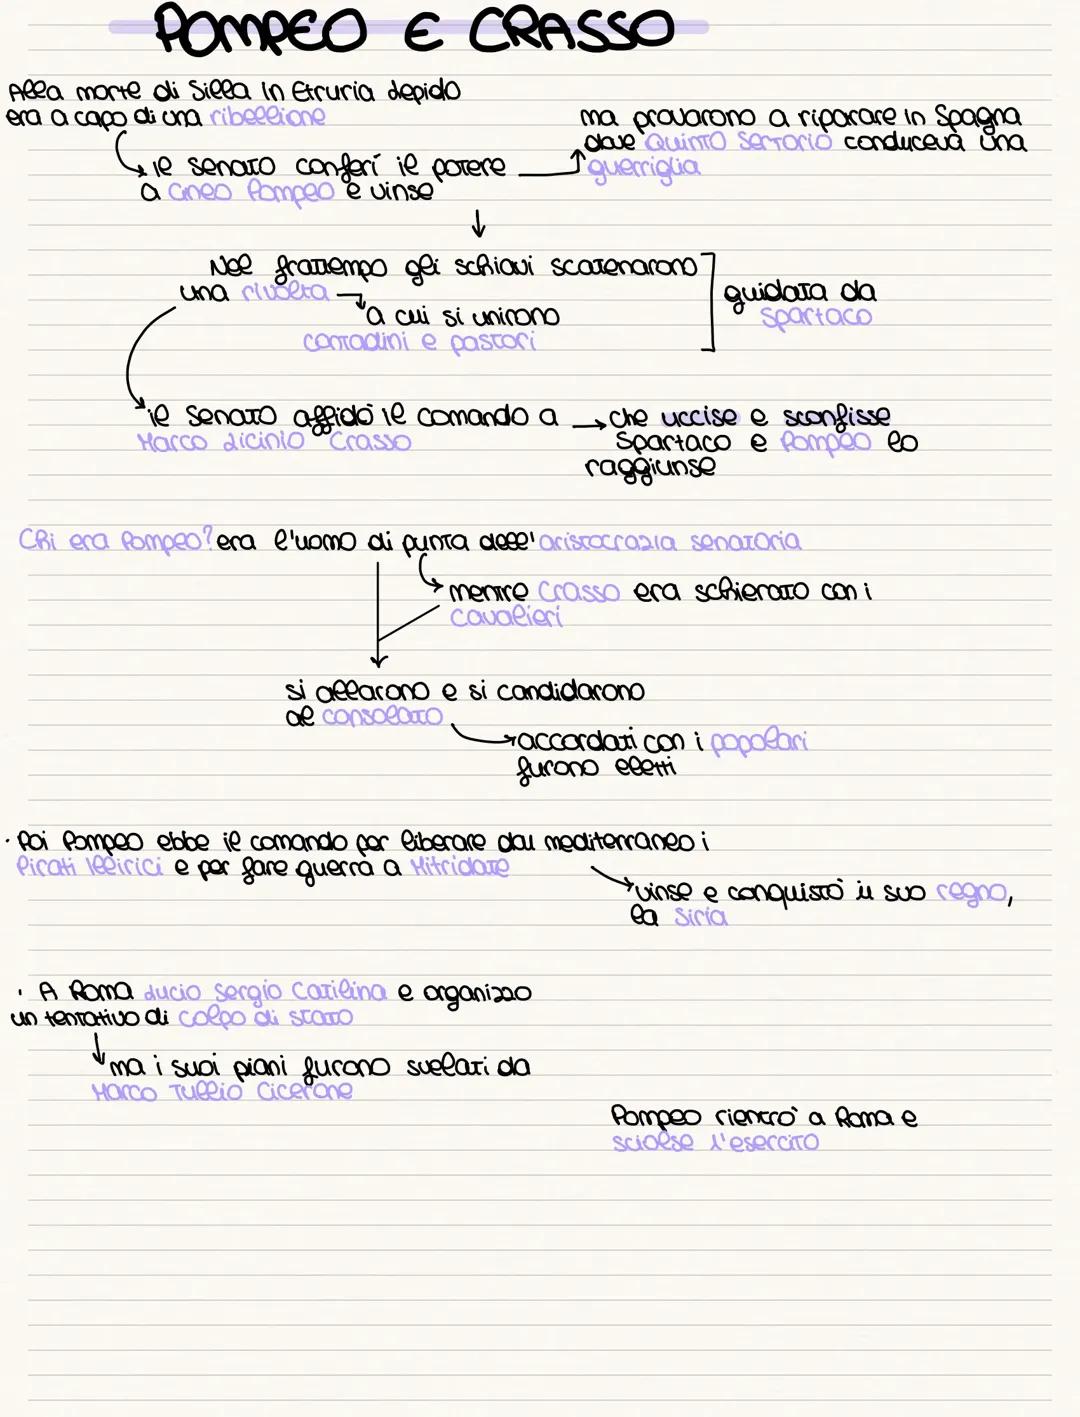 POMPEO E CRASSO
Alla morte di Silla in Etruria Lepido
era a capo di una ribellione
il senato conferì il potere
a Gneo Pompeo e vinse
ma provarono a riparare in Spagna
dove Quinto Sertorio conduceva una
guerriglia
Nel frattempo gli schiavi scatenarono
una rivolta
a cui si unirono
contadini e pastori
guidata da
Spartaco
il senato affidò il comando a
Marco Licinio Crasso
che uccise e sconfisse
Spartaco e Pompeo lo
raggiunse
Chi era Pompeo? era l'uomo di punta dell'aristocrazia senatoria
mentre Crasso era schierato con i
cavalieri
si allarono e si candidarono
al consolato
accordati con i popolari
furono eletti
· Poi Pompeo ebbe il comando per liberare dal mediterraneo i
Pirati Illirici e per fare guerra a Mitridate
vinse e conquistò il suo regno,
la Siria
· A Roma Lucio Sergio Catilina e organizzo
un tentativo di colpo di stato
ma i suoi piani furono svelati da
Marco Tullio Cicerone
Pompeo rientrò a Roma e
sciolse l'esercito